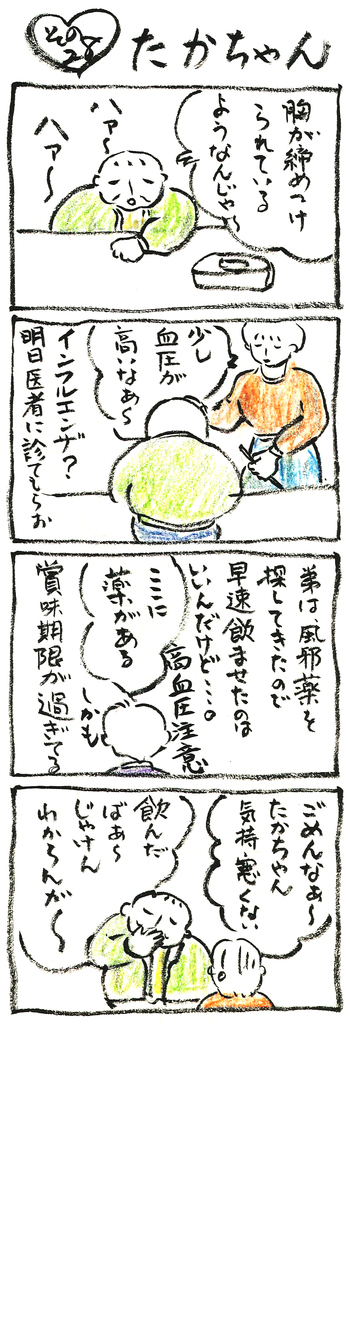 その28
たかちゃん
胸が締めつけ
られている
ようなんじゃ〜
ハァ〜
ハァ〜
少し
血圧が
高いなぁ〜
インフルエンザ?
明日医者に診てもらお
弟は風邪薬を
探してきたので
早速飲ませたのは
いいんだけど・・・。
高血圧注意
ここに
薬がある
しかも
賞味期限が過ぎてる
ごめんなぁ〜
たかちゃん
気持悪くない
飲んだ
ばぁ〜
じゃけん
わからんが〜